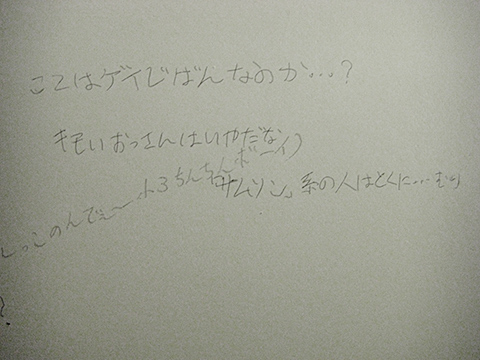 ここはゲイじばんなのか…?
キモいおっさんはいやだな
小3ちんちんボーイ)
サムソン系の人はとくに…むり
しっこのんでぇ〜